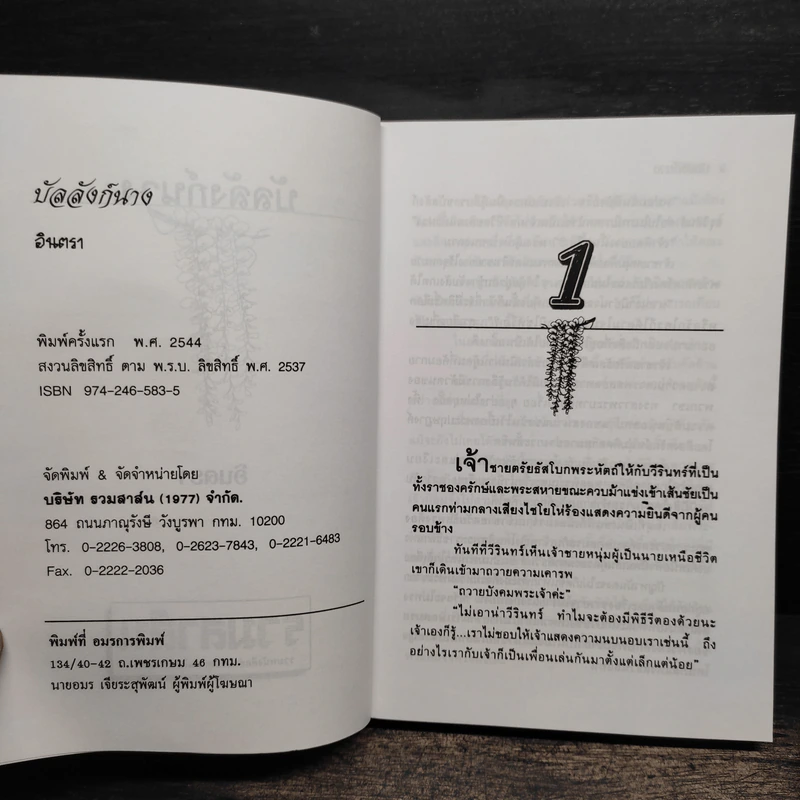 บัลลังก์นาง
อินตรา
พิมพ์ครั้งแรก พ.ศ. 2544
สงวนลิขสิทธิ์ ตาม พ.ร.บ. ลิขสิทธิ์ พ.ศ. 2537
ISBN 974-246-583-5
จัดพิมพ์ & จัดจำหน่ายโดย
บริษัท รวมสาส์น (1977) จำกัด.
864 ถนนภาณุรังษี วังบูรพา กทม. 10200
โทร. 0-2226-3808, 0-2623-7843, 0-2221-6483
Fax. 0-2222-2036
พิมพ์ที่ อมรการพิมพ์
134/40-42 ถ.เพชรเกษม 46 กทม.
นายอมร เจียระสุพัฒน์ ผู้พิมพ์ผู้โฆษณา
1
เจ้าชายตรัยธัสโบกพระหัตถ์ให้กับวีรินทร์ที่เป็น
ทั้งราชองครักษ์และพระสหายขณะควบม้าแข่งเข้าเส้นชัยเป็น
คนแรกท่ามกลางเสียงไชโยโห่ร้องแสดงความยินดีจากผู้คน
รอบข้าง
ทันทีที่วีรินทร์เห็นเจ้าชายหนุ่มผู้เป็นนายเหนือชีวิต
เขาก็เดินเข้ามาถวายความเคารพ
“ถวายบังคมพระเจ้าค่ะ”
“ไม่เอาน่าวีรินทร์ ทำไมจะต้องมีพิธีรีตองด้วยนะ
เจ้าเองก็รู้...เราไม่ชอบให้เจ้าแสดงความนบนอบเราเช่นนี้ ถึง
อย่างไรเรากับเจ้าก็เป็นเพื่อนเล่นกันมาตั้งแต่เล็กแต่น้อย”